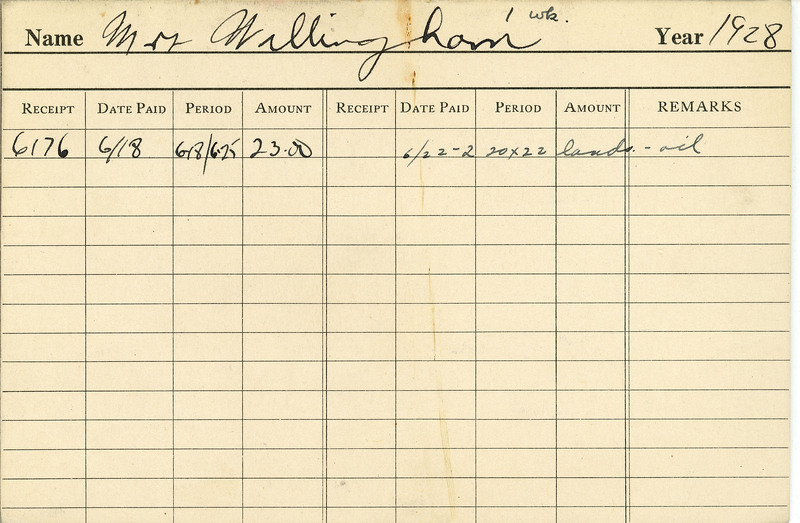 1 wk.
Name Mrs Willingham Year 1928
RECEIPT DATE PAID PERIOD AMOUNT RECEIPT DATE PAID PERIOD AMOUNT REMARKS
6176 6/18 6/18/6-25 23.00 6/22-2 20x22 lands. - oil